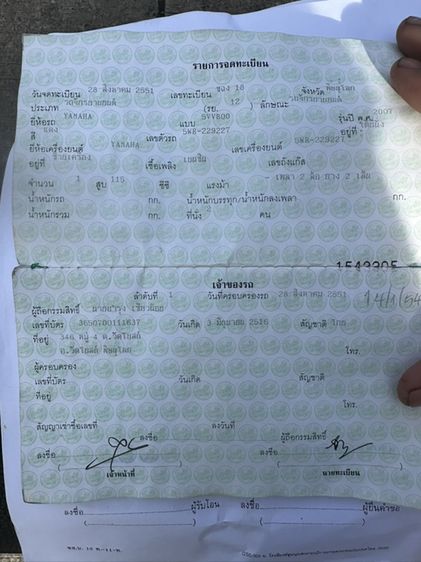 รายการจดทะเบียน
วันจดทะเบียน 28 สิงหาคม 2551 เลขทะเบียน ของ 18 จังหวัด พิษณุโลก
ประเภท รถจักรยานยนต์ (รย. 12 ) ลักษณะ รถจักรยานยนต์
ยี่ห้อรถ YAMAHA แบบ 5VV800 รุ่นปี ค.ศ. 2007
สี แดง เลขตัวรถ 5KE-229227 อยู่ที่
ยี่ห้อเครื่องยนต์ YAMAHA เลขเครื่องยนต์ 5KE-229227
อยู่ที่ เชื้อเพลิง เบนซิน เลขถังแก๊ส
จำนวน 1 สูบ 115 ซีซี แรงม้า - เพลา 2 ล้อ ยาง 2 เส้น
น้ำหนักรถ กก. น้ำหนักบรรทุก/น้ำหนักลงเพลา กก.
น้ำหนักรวม กก. ที่นั่ง คน
เจ้าของรถ
ลำดับที่ 1 วันที่ครอบครองรถ 28 สิงหาคม 2551
ผู้ถือกรรมสิทธิ์
เลขที่บัตร 3650700111637 วันเกิด 3 มิถุนายน 2516 สัญชาติ ไทย
ที่อยู่ 346 หมู่ 4 ต.วัดโบสถ์ โทร.
อ.วัดโบสถ์ พิษณุโลก
ผู้ครอบครอง
เลขที่บัตร วันเกิด สัญชาติ
ที่อยู่ โทร.
สัญญาเช่าซื้อเลขที่ ลงวันที่
ลงชื่อ ผู้ถือกรรมสิทธิ์
ลงชื่อ ลงชื่อ
เจ้าหน้าที่ นายทะเบียน
ลงชื่อ ผู้รับโอน ลงชื่อ ผู้ยื่นคำขอ